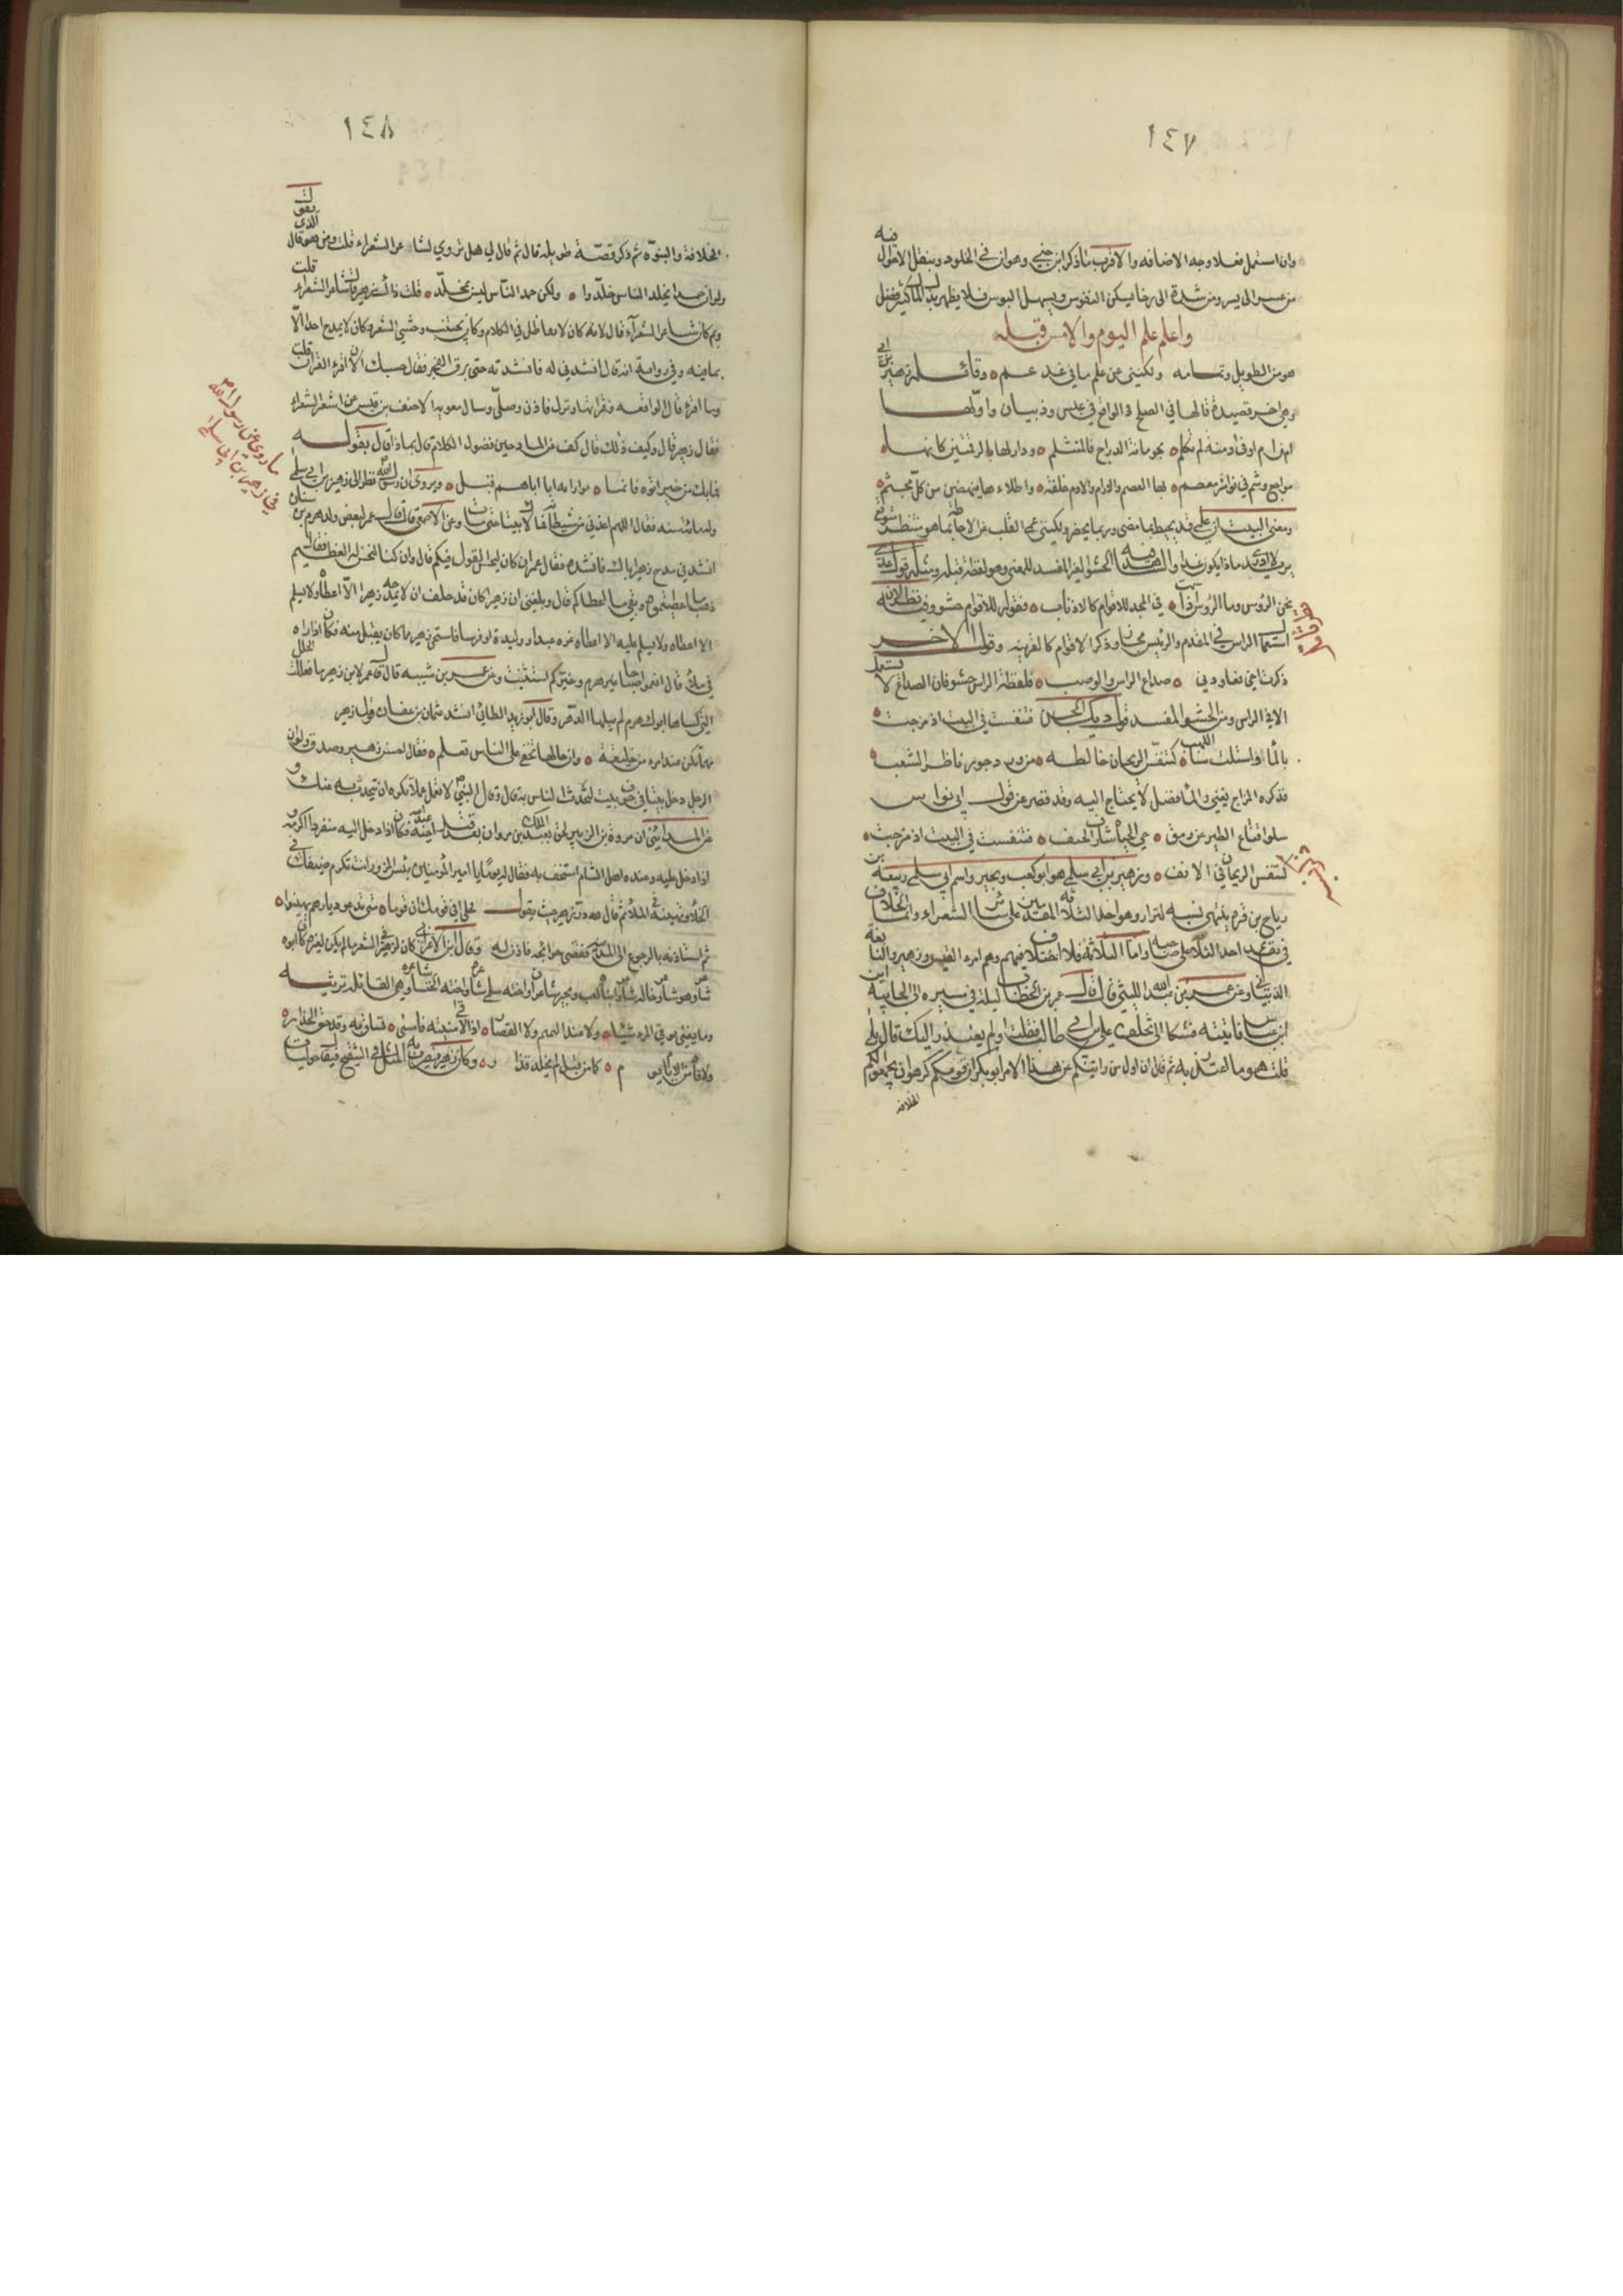 ١٤٧
وان استعمل فعلا وجه الاضافه والاقرب ما ذكر ابن جني وهو ان في الخلود وينقل الاحوال فيه
من عسر الى يسر ومن شدة الى رخا يسكن النفوس ويسهل البوس فلا يظهر بذلك كثير فضل
واعلم علم اليوم والامس قبله
هو من الطويل وتمامه ولكنني عن علم ما في غد عم وقائله زهير بن ابي
وهي اخر قصيدة قالها في الصلح الواقع في عبس وذبيان واولها
امن ام اوفا دمنة لم تكلم بحومانة الدراج فالمتثلم ودار لها بالرقمتين كانها
مراجع وشم في نواشر معصم بها العصم والارام والادم خلفة واطلاءها ينهضن من كل مجثم
ومعنى البيت ان علمي قد يحيط بما مضى وبما يحضر ولكنني عمي القلب عن الاحاطة بما هو منتظر متوقع
يريد لا ادري ماذا يكون غدا والشاهد فيه الحشو الغير المفسد للمعنى وهو لفظة قبله ومثله قول عدي
نحن الرؤس وما الرؤس اذا سمت في المجد للاقوام كالاذناب فقوله للاقوام حشو وفيه نظر لان
استعمال الراس في المقدم والرئيس مجاز وذكر الاقوام كالقرينه وقول الاخر
ذكرت اخي فعاودني صداع الراس والوصب فلفظة الراس حشو فان الصداع لا يستعمل
الا في الراس ومن الحشو المفسد قول ديك الجن فتنفست في البيت اذ مزجت
بالما واستلت سنا اللهب كتنفس الريحان خالطه من ورد جور ناظر الشعب
فذكره المزاج يغني والما فضل لا يحتاج اليه وقد قصر عن قول ابي نواس
سلوا قناع الطين عن رمق حي الحياة شارف الحتف فتنفست في البيت اذ مزجت
كتنفس الريحان في الانف وزهير بن ابي سلمى هو ابو كعب وبجير واسم ابي سلمى ربيعة بن
رياح بن قرم ينتهي نسبه لنزار وهو احد الثلاثة المقدمين على سائر الشعراء وانما الخلاف
في تقديم احد الثلاثة على صاحبه واما الثلاثة فلا اختلاف فيهم وهم امرء القيس وزهير والنابغة
الذبياني وعن عمر بن عبد الله الليثي قال قال عمر بن الخطاب ليلة في سيره الى الجابية اين
ابن عباس فاتيته فشكا الي تخلف علي بن ابي طالب فقلت او لم يعتذر اليك قال بلى
قلت هو ما اعتذر به ثم قال ان اول من رايتكم عن هذا الامر ابو بكر ان قومكم كرهوا ان يجمعوا لكم
الخلافة
١٤٨
الخلافة والنبوة ثم ذكر قصة طويلة قال ثم قال لي هل تروي لشاعر الشعراء قلت ومن هو قال الذي يقول
ولو ان حمدا يخلد الناس خلدوا ولكن حمد الناس ليس بمخلد قلت ذاك زهير قال شاعر الشعراء قلت
وبم كان شاعر الشعراء قال لانه كان لا يعاظل في الكلام وكان يجتنب وحشي الشعر وكان لا يمدح احدا الا
بما فيه وفي رواية انه قال انشدني له فانشدته حتى برق الفجر فقال حسبك الان اقرء القران قلت
وما اقرء قال الواقعه فقراتها ونزل فاذن وصلى وسال معويه الاحنف بن قيس عن اشعر الشعراء
فقال زهير قال وكيف ذلك قال كف عن المادحين فضول الكلام قال بماذا قال بقوله
فما يك من خير اتوه فانما توارثه ابا اباهم قبل ويروى ان رسول الله نظر الى زهير بن ابي سلمى
وله مائة سنه فقال اللهم اعذني من شيطانه فما لاك بيتا حتى مات وعن الاصمعي قال قال عمر لبعض ولد هرم بن سنان
انشدني مدح زهير اباك فانشده فقال عمر ان كان ليحسن القول فيكم قال وان كنا لنحسن له العطا فقال
ذهب ما اعطيتموه وبقي ما اعطاكم قال وبلغني ان زهيرا كان قد حلف ان لا يمدحه زهيرا الا اعطاه ولا يسلم
الا اعطاه ولا يسلم عليه الا اعطاه غره عبدا او وليدة او فرسا فاستحى زهير مما كان يقبل منه فكان اذا راه
في ملأ قال انعموا صباحا غير هرم وخيركم استثنيت وعن عمر بن شيبه قال قال عمر لابن زهير ما فعلت الحلل
التي كساها ابوك هرم لم يبلها الدهر وقال ابو زيد الطائي انشد عثمان بن عفان قول زهير
مهما تكن عند امرء من خليقة وان خالها تخفى على الناس تعلم فقال احسن زهير وصدق ولو ان
الرجل دخل بيتا في جوف بيت لتحدث الناس به قال وقال النبي لا تعمل عملا تكره ان يتحدث به عنك و
عن المدائني ان عروة بن الزبير لحق بعبد الملك بن مروان بعد قتل اخيه عبد الله فكان اذا دخل اليه منفردا اكرمه و
اذا دخل عليه وعنده اهل الشام استخف به فقال له يوما يا امير المؤمنين بئس المزور انت تكرم ضيفك في
الخلا وتهينه في الملأ ثم قال لله در زهير حيث يقول فحلي في ديارك ان قوما متى يدعوا ديارهم يهونوا
ثم استاذنه بالرجوع الى المدينة فقضى حوائجه فاذن له وقال ابن الاعرابي كان لزهير في الشعر ما لم يكن لغيره كان ابوه
شاعرا وهو شاعر وخاله شاعر وابناه كعب وبجير شاعران واخته سلمى شاعرة واخته الخنساء شاعرة وهي القائلة ترثيه
وما يغني توقي المرء شيئا ولا عقد التميم ولا الغضار اذا لاقى منيته فامسى يساق به وقد حق الحذار
ولاقاه من الايام يوم كما من قبل لم يخلد قدار وكان زهير يضرب به المثل في التنقيح فيقال حوليات
ما روي عن رسول الله
في زهير بن ابي سلمى